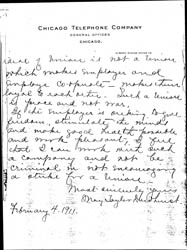 CHICAGO TELEPHONE COMPANY
GENERAL OFFICES
CHICAGO.
idea of Unions is not a Union
which makes Employer and
Employe co-operate - makes them
loyal to each other. Such a Union
is peace and not war.
If the Employer is seeking to give
the minds
and make good health possible
and work pleasant, I feel
that I can work with such
a company and not be
criminal in not encouraging
a strike for a Union.
Most sincerely yours
Mary Taylor
February 4, 1911.